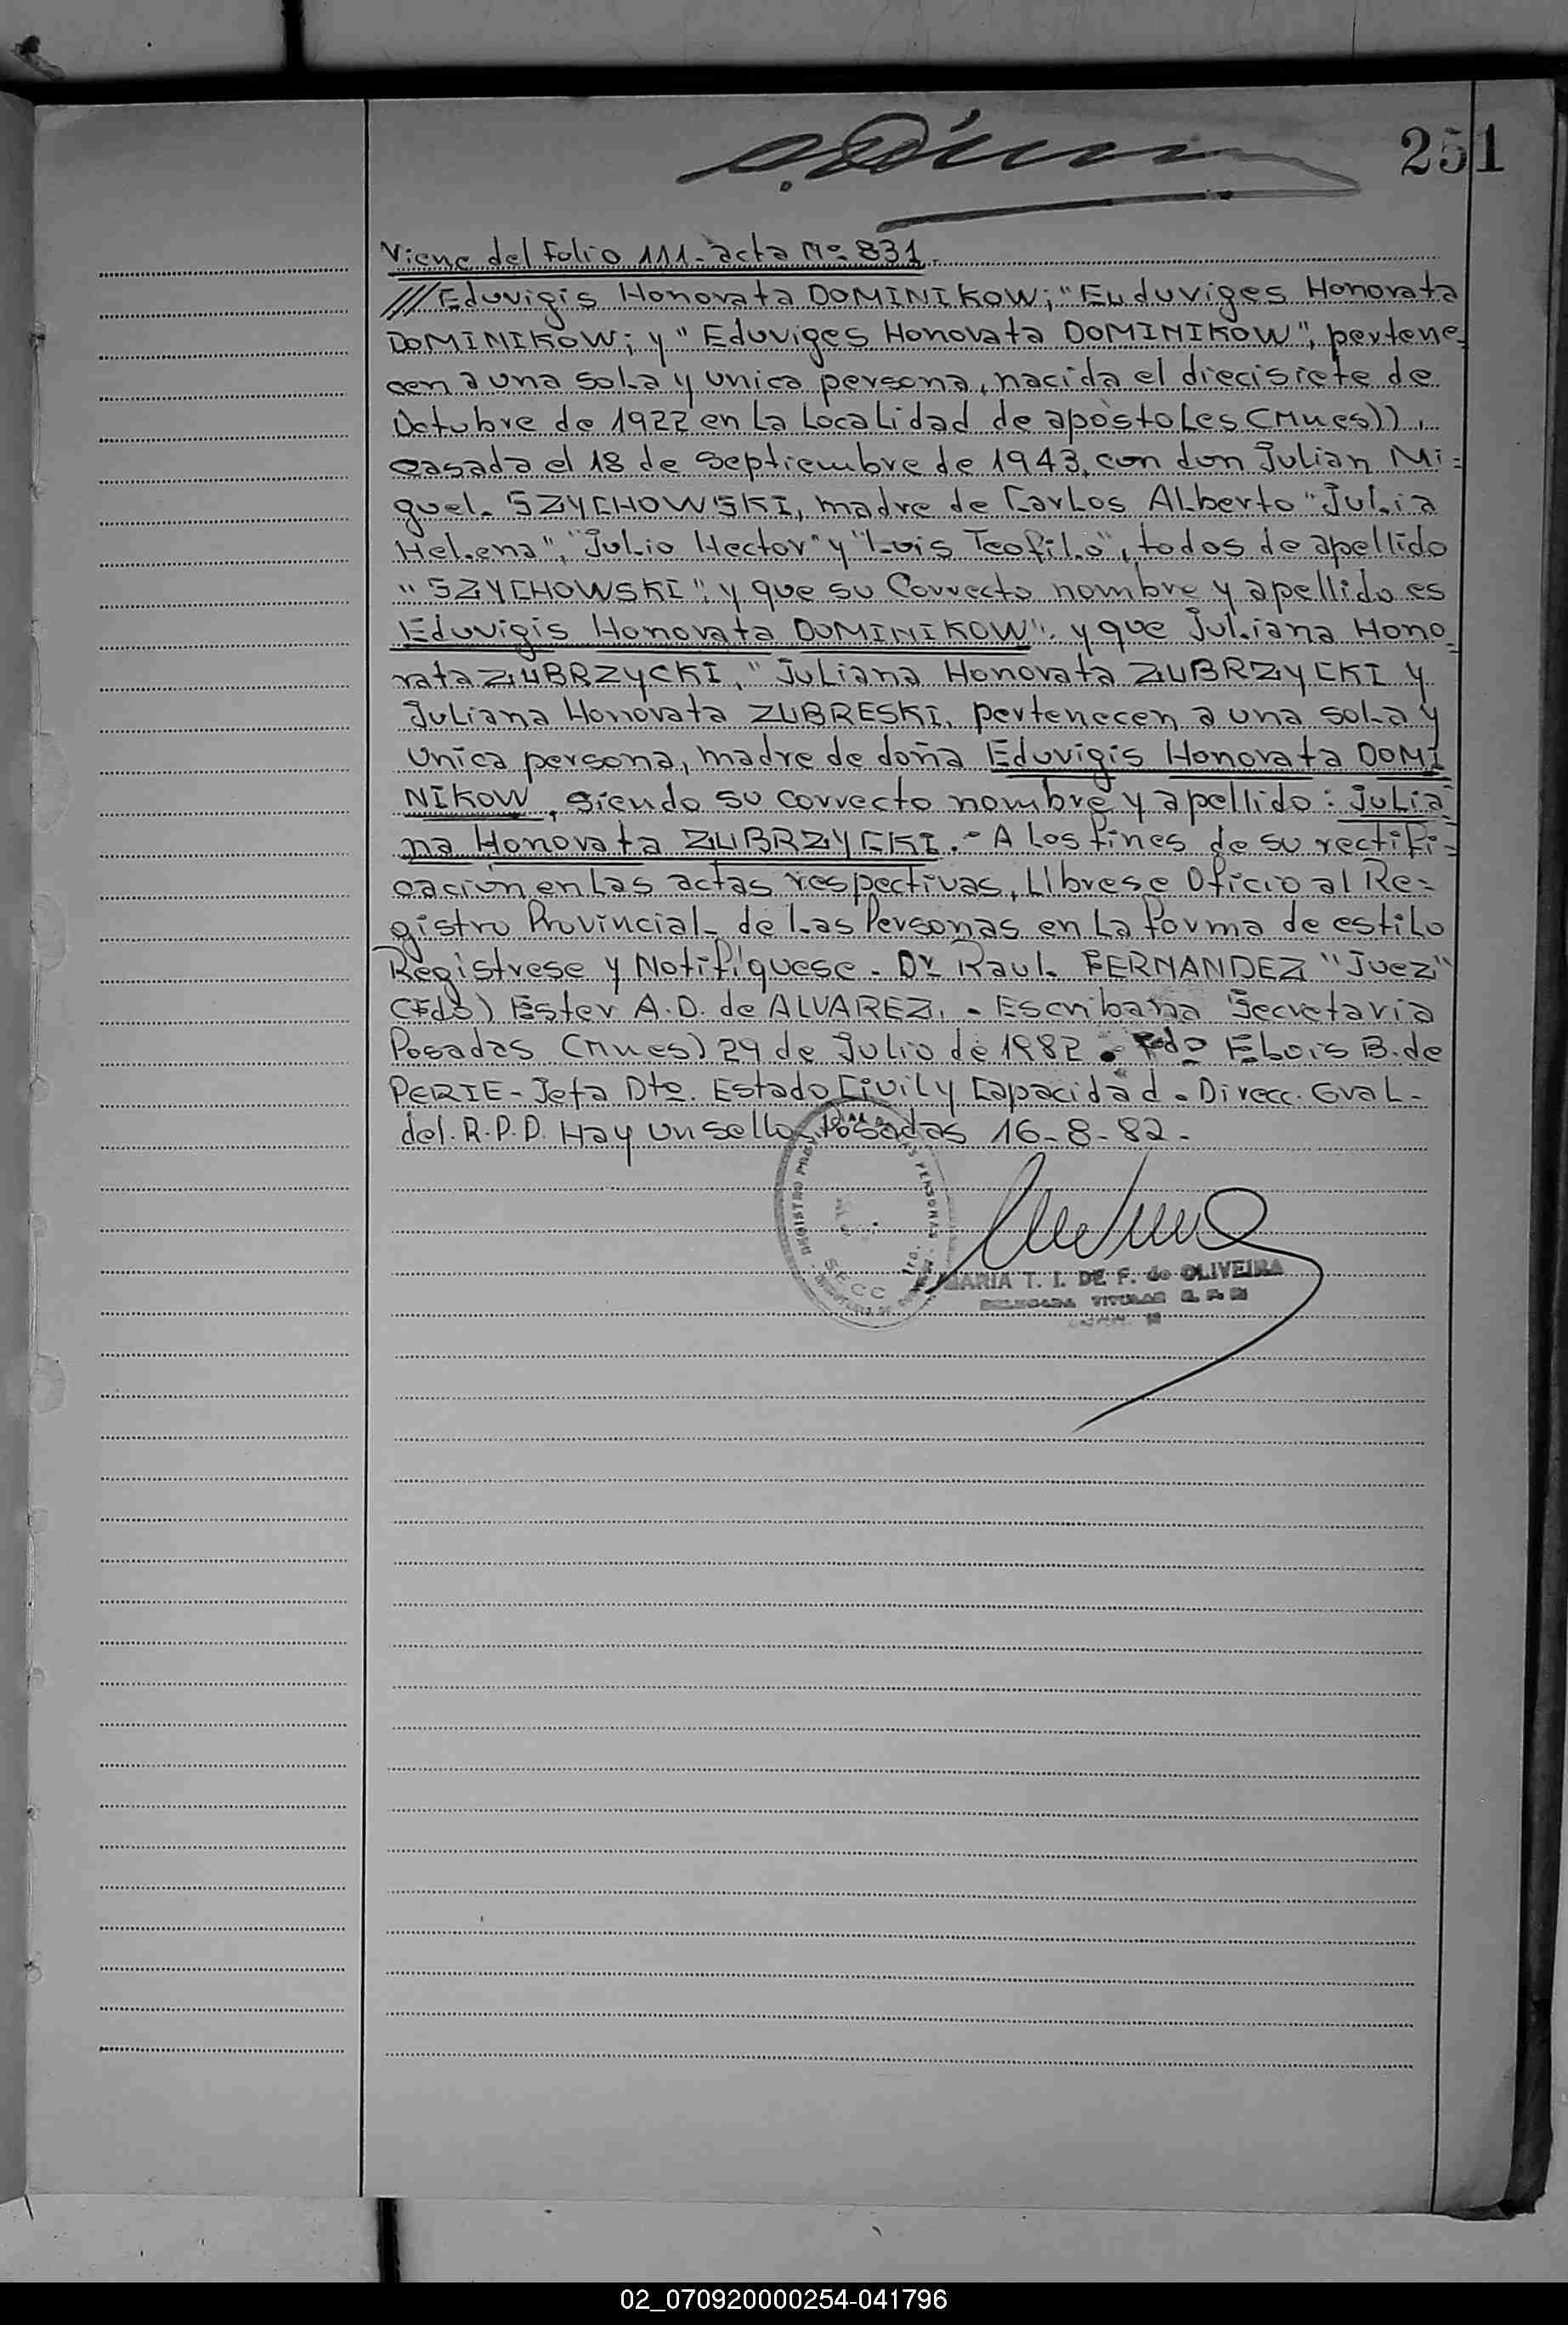 251
Viene del folio 111 - acta Nº 831.
/// Eduvigis Honorata DOMINIKOW; "Euduviges Honorata
DOMINIKOW; y "Eduviges Honorata DOMINIKOW", pertene-
cen a una sola y unica persona, nacida el diecisiete de
Octubre de 1922 en la Localidad de apòstoles (Mnes)),
casada el 18 de Septiembre de 1943, con don Julian Mi=
guel SZYCHOWSKI, madre de Carlos Alberto "Julia
Helena", "Julio Hector" y "Luis Teofilo", todos de apellido
"SZYCHOWSKI", y que su Correcto nombre y apellido es
Eduvigis Honorata DOMINIKOW". y que Juliana Hono=
rata ZUBRZYCKI, "Juliana Honorata ZUBRZYCKI y
Juliana Honorata ZUBRESKI, pertenecen a una sola y
unica persona, madre de doña Eduvigis Honorata DOMI
NIKOW, siendo su correcto nombre y apellido: Julia
na Honorata ZUBRZYCKI.- A los fines de su rectifi=
cación en las actas respectivas, Librese Oficio al Re=
gistro Provincial de las Personas en la forma de estilo
Registrese y Notifíquese. Dr Raul FERNANDEZ "Juez"
(Fdo) Ester A.D. de ALVAREZ. - Escribana Secretaria
Posadas (Mnes) 29 de Julio de 1982. Fdo ELois B. de
PERIE - Jefa Dto. Estado Civil y Capacidad. Direcc. Gral-
del. R.P.P. Hay un sello Posadas 16-8-82-
MARIA T. I. DE F. de OLIVEIRA
DELEGADA TITULAR
02_070920000254-041796